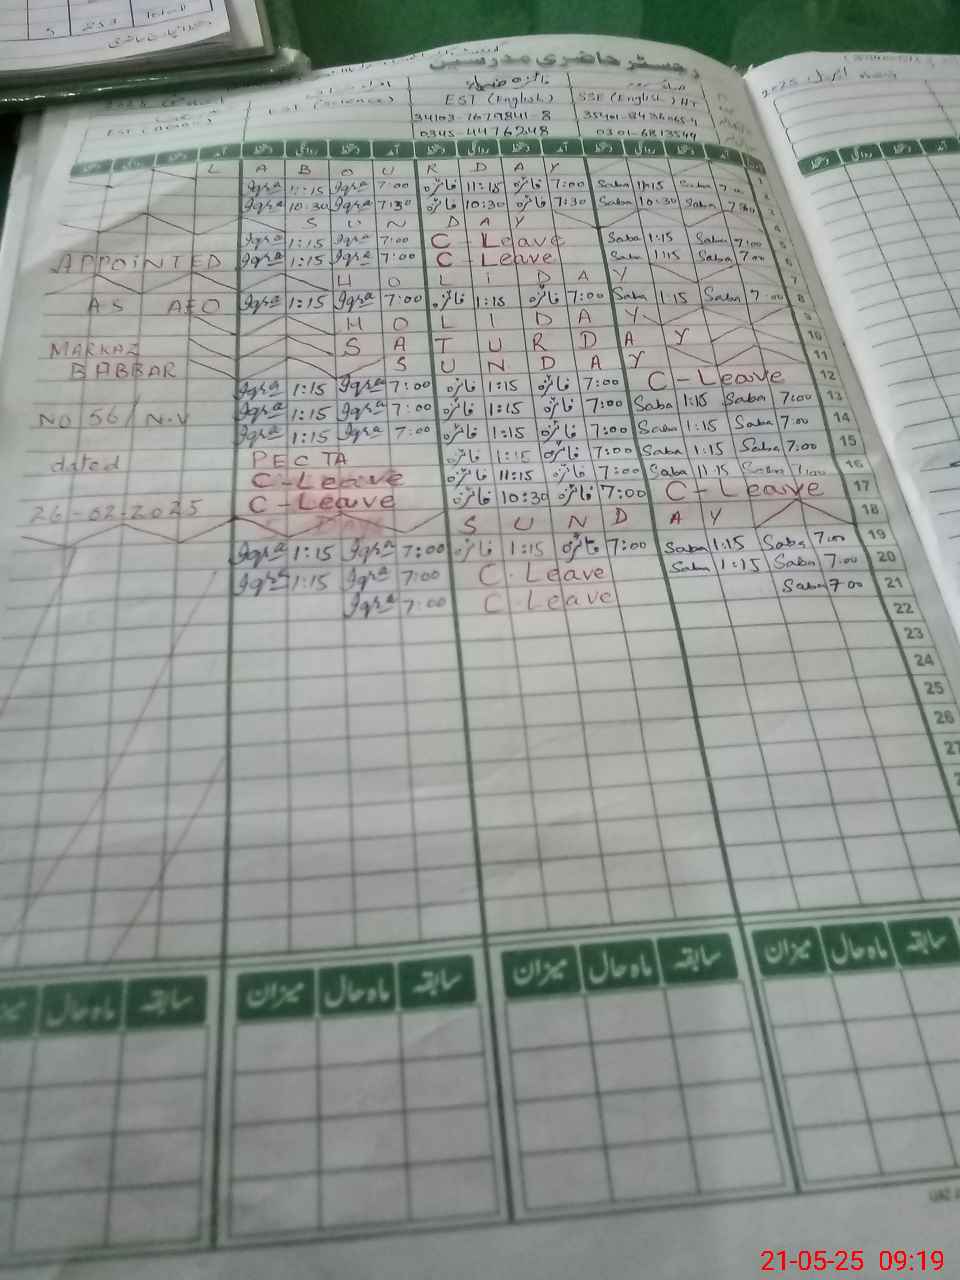 رجسٹر حاضری مدرسین
EST (English) SSE (English)
0345-4476248 0301-6813549
L A B O U R D A Y
Iqra 1:15 Iqra 7:00 فائزہ 11:15 فائزہ 7:00 Saba 11:15 Saba 7:00 2
Iqra 10:30 Iqra 7:30 فائزہ 10:30 فائزہ 7:30 Saba 10:30 Saba 7:30 3
S U N D A Y 4
Iqra 1:15 Iqra 7:00 C-Leave Saba 1:15 Saba 7:00 5
APPOINTED Iqra 1:15 Iqra 7:00 C-Leave Saba 1:15 Saba 7:00 6
H O L I D A Y 7
AS AEO Iqra 1:15 Iqra 7:00 فائزہ 1:15 فائزہ 7:00 Saba 1:15 Saba 7:00 8
H O L I D A Y 9
MARKAZ S A T U R D A Y 10
BABBAR S U N D A Y 11
Iqra 1:15 Iqra 7:00 فائزہ 1:15 فائزہ 7:00 C-Leave 12
NO 56/N.V Iqra 1:15 Iqra 7:00 فائزہ 1:15 فائزہ 7:00 Saba 1:15 Saba 7:00 13
Iqra 1:15 Iqra 7:00 فائزہ 1:15 فائزہ 7:00 Saba 1:15 Saba 7:00 14
dated PECTA فائزہ 1:15 فائزہ 7:00 Saba 1:15 Saba 7:00 15
C-Leave فائزہ 11:15 فائزہ 7:00 Saba 11:15 Saba 7:00 16
26-02-2025 C-Leave فائزہ 10:30 فائزہ 7:00 C-Leave 17
S U N D A Y 18
Iqra 1:15 Iqra 7:00 فائزہ 1:15 فائزہ 7:00 Saba 1:15 Saba 7:00 19
Iqra 1:15 Iqra 7:00 C-Leave Saba 1:15 Saba 7:00 20
Iqra 7:00 C-Leave Saba 7:00 21
22
23
24
25
26
27
سابقہ ماہ حال میزان سابقہ ماہ حال میزان سابقہ ماہ حال میزان سابقہ ماہ حال
21-05-25 09:19